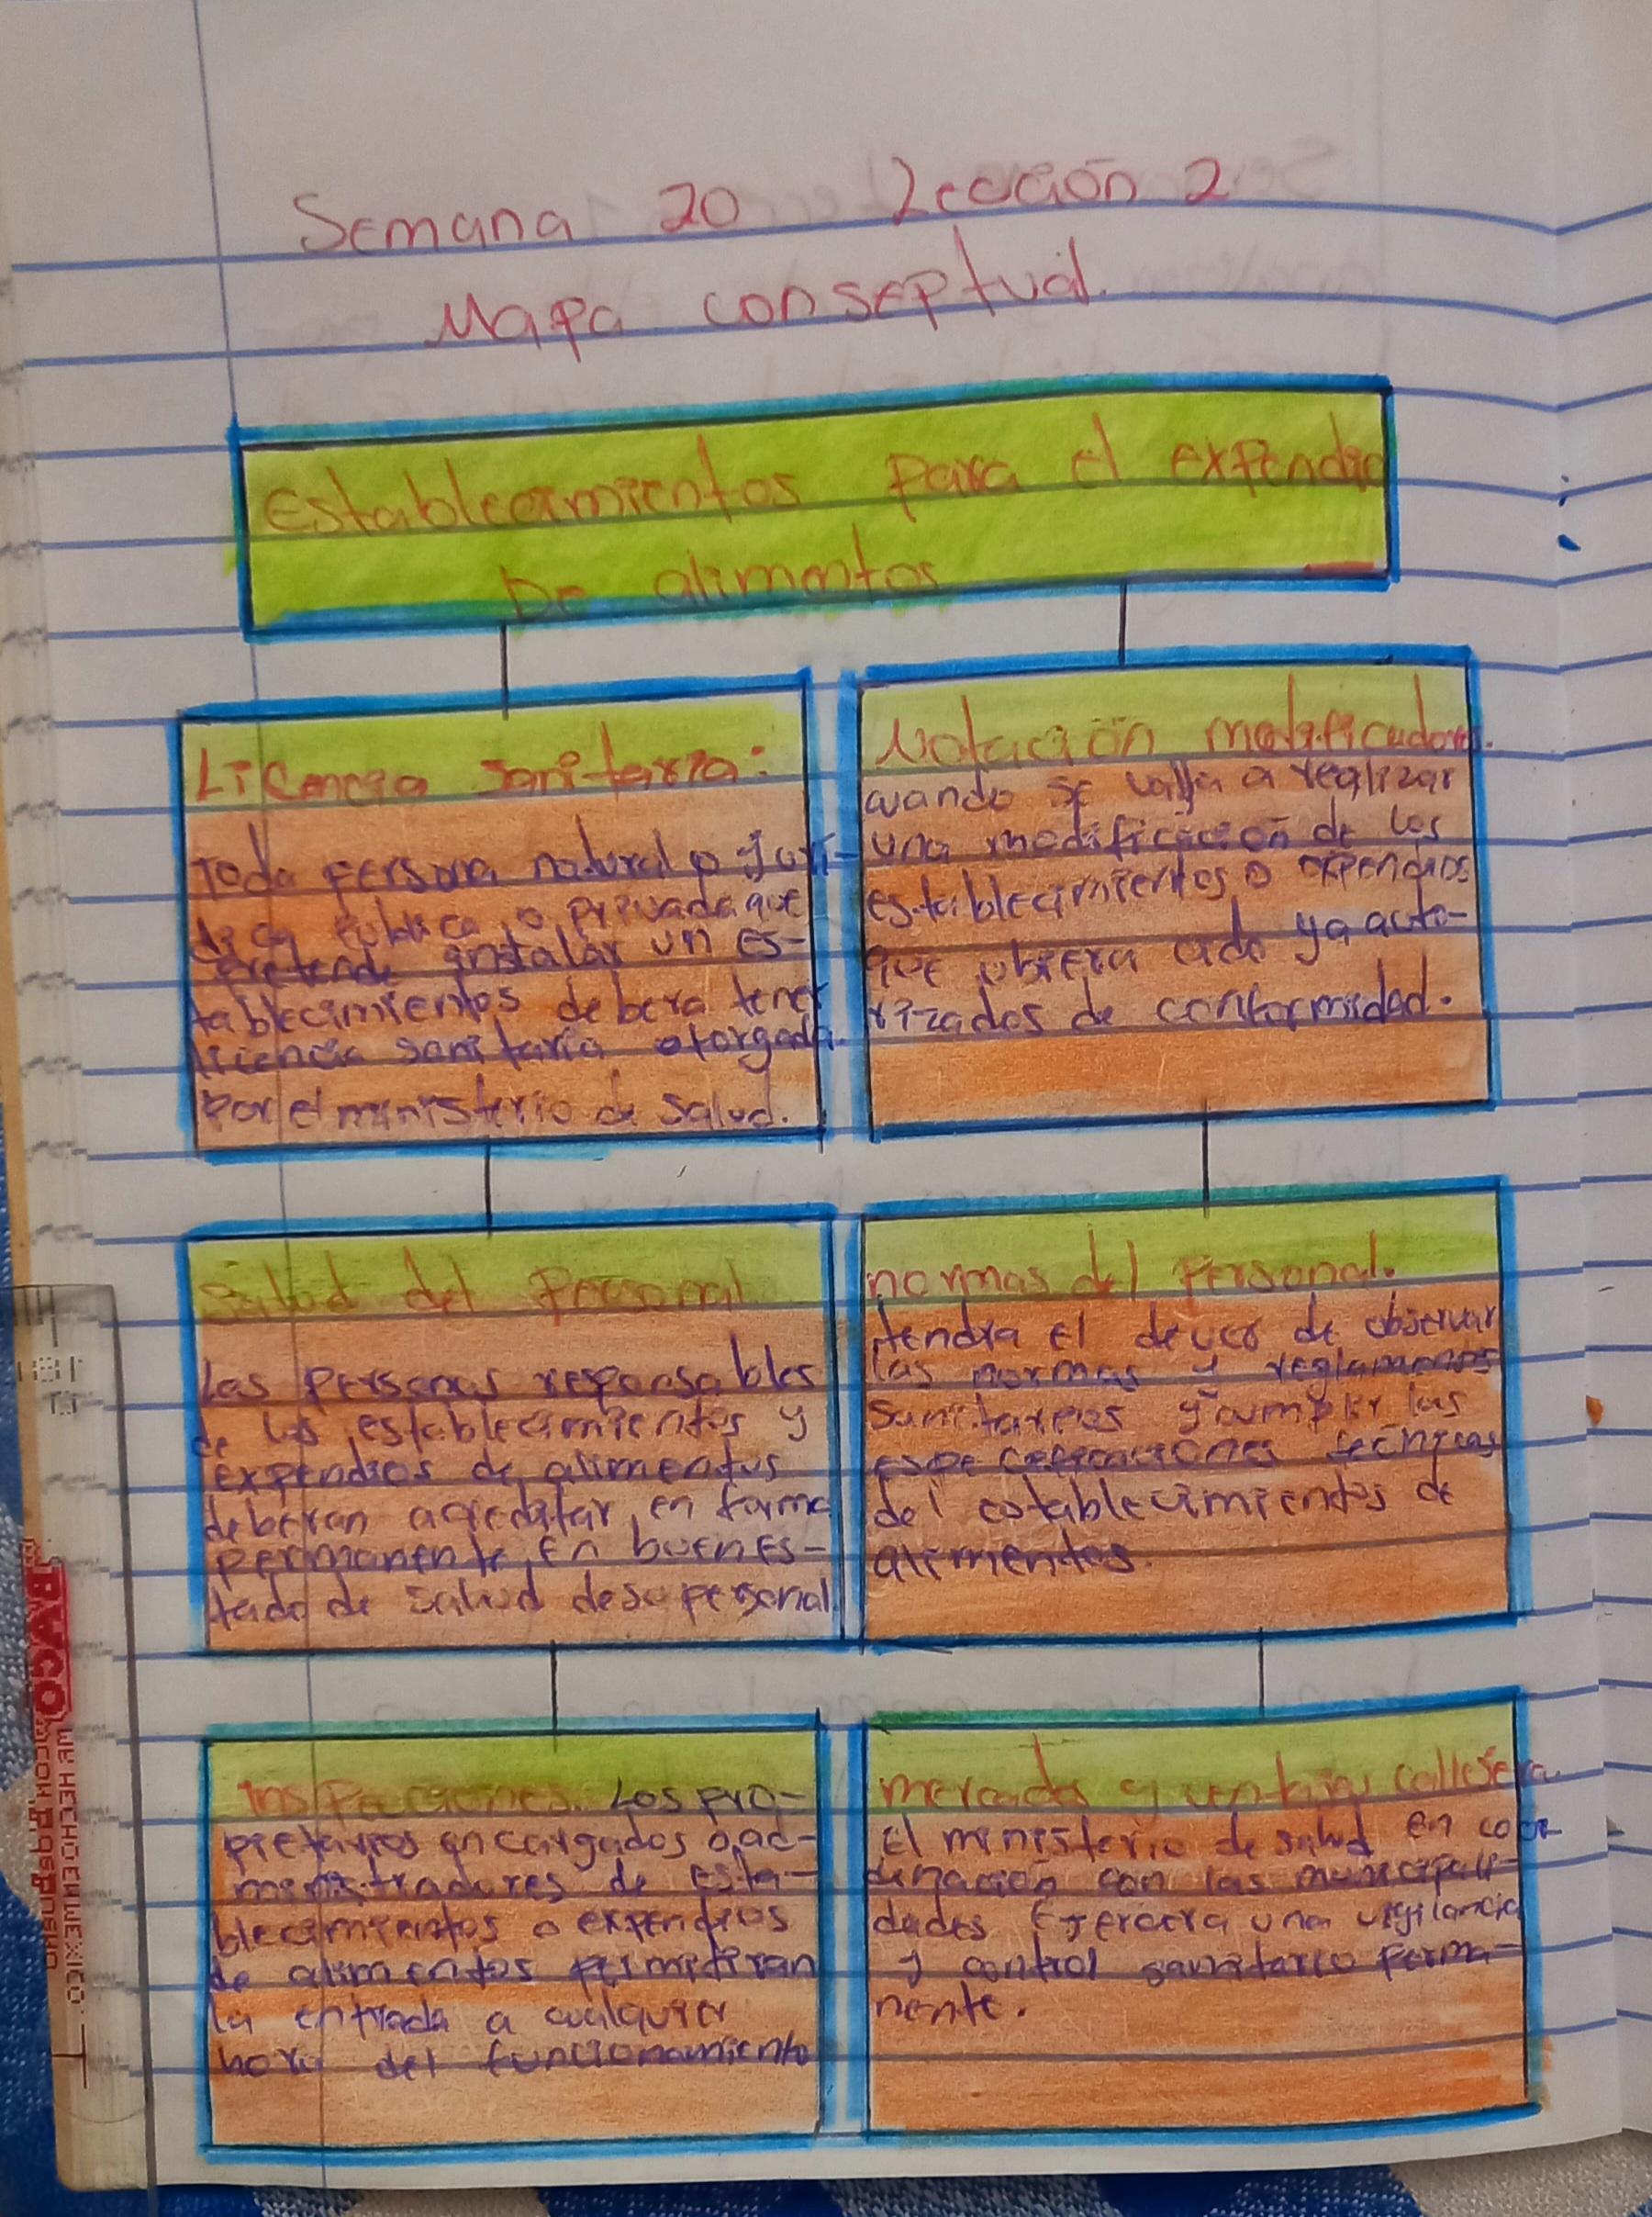 Semana 20 Lección 2
Mapa conseptual.
Establecimientos para el expendio
De alimentos
Licencia sanitaria:
Toda persona natural o juri-
dica publica o privada que
pretende instalar un es-
tablecimientos debera tener
licencia sanitaria otorgada
por el ministerio de salud.
Notación modificadora.
cuando se valla a realizar
una modificación de los
establecimientos o expendios
que ubiera cido ya auto-
rizados de conformidad.
Salud del Personal
Las personas responsables
de los establecimientos y
expendios de alimentos
deberan acreditar, en forma
permanente, En buen es-
tado de salud de su personal
normas del personal.
tendra el dever de observar
las normas y reglamentos
sanitareos y cumplir las
especeficaciones tecnicas
del establecimientos de
alimentos.
inspecciones. Los pro-
pietarios encargados o ad-
ministradores de esta-
blecimientos o expendios
de alimentos permitiran
la entrada a cualquier
hora del funcionamiento
mercados y ventas callejera.
El ministerio de salud en coor-
dinación con las municipali-
dades Ejercera una vigilancia
y control sanitareo perma-
nente.
HECHO EN MEXICO